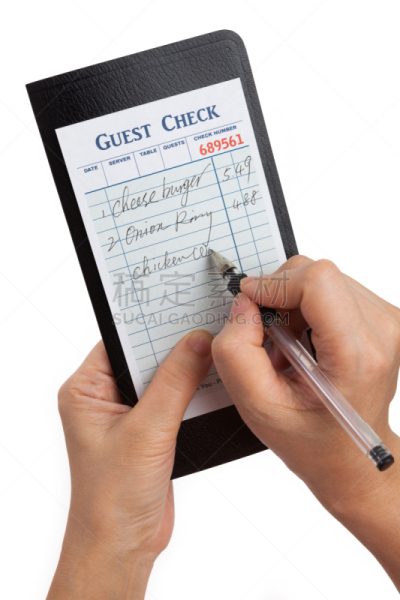 GUEST CHECK
DATE SERVER TABLE GUESTS CHECK NUMBER
689561
1 cheese burger 549
2 Onion Ring 488
chicken
稿定素材
SUCAI.GAODING.COM
YOU